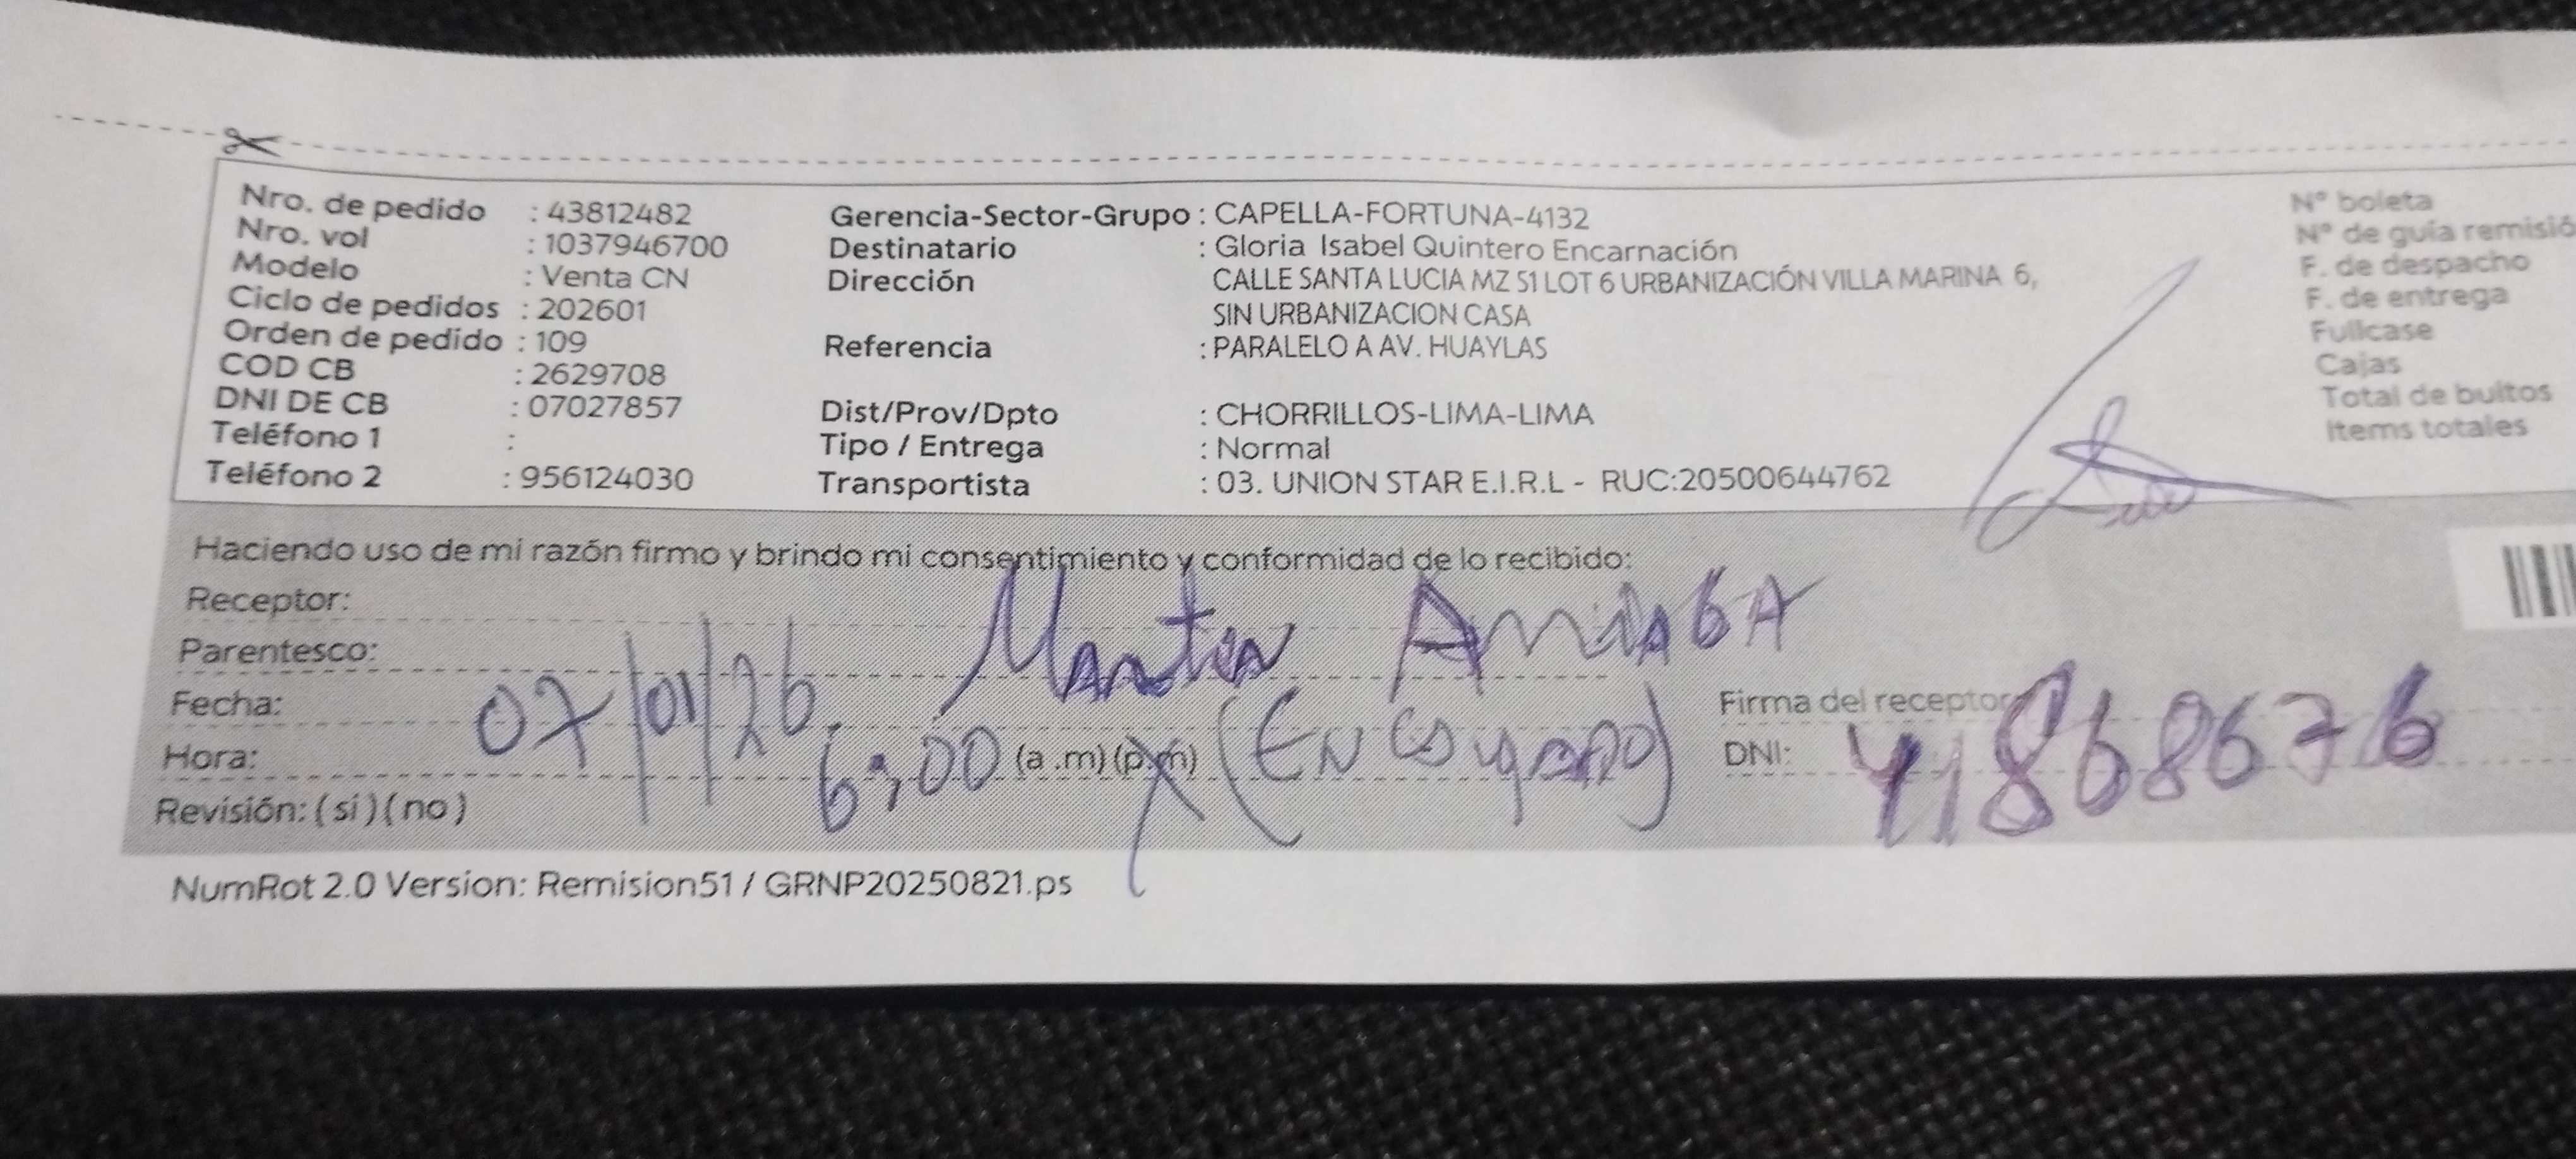 Nro. de pedido : 43812482
Nro. vol : 1037946700
Modelo : Venta CN
Ciclo de pedidos : 202601
Orden de pedido : 109
COD CB : 2629708
DNI DE CB : 07027857
Teléfono 1 :
Teléfono 2 : 956124030
Gerencia-Sector-Grupo : CAPELLA-FORTUNA-4132
Destinatario : Gloria Isabel Quintero Encarnación
Dirección CALLE SANTA LUCIA MZ S1 LOT 6 URBANIZACIÓN VILLA MARINA 6,
SIN URBANIZACION CASA
Referencia : PARALELO A AV. HUAYLAS
Dist/Prov/Dpto : CHORRILLOS-LIMA-LIMA
Tipo / Entrega : Normal
Transportista : 03. UNION STAR E.I.R.L - RUC:20500644762
N° boleta
N° de guía remisió
F. de despacho
F. de entrega
Fullcase
Cajas
Total de bultos
Items totales
Haciendo uso de mi razón firmo y brindo mi consentimiento y conformidad de lo recibido:
Receptor:
Parentesco:
Fecha: 07/01/26
Hora: 6:00 (a .m) (p.m)
Revisión: ( si ) ( no )
Firma del receptor
DNI: 41868676
NumRot 2.0 Version: Remision51 / GRNP20250821.ps